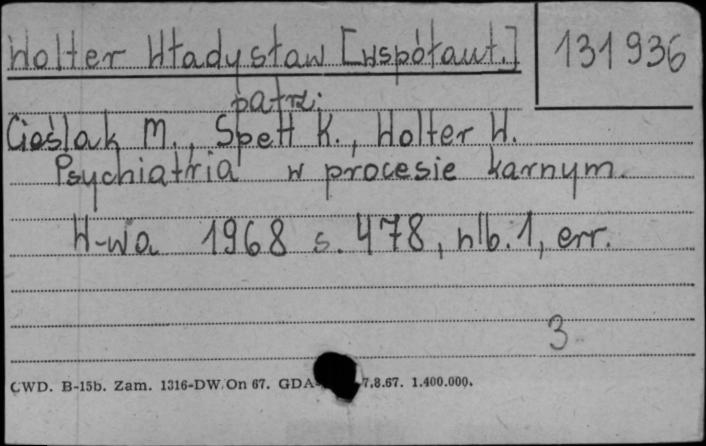 Wolter Władysław [współaut.] 131936
patrz:
Cieślak M., Spett K., Wolter W.
Psychiatria w procesie karnym.
W-wa 1968 s. 478, nlb. 1, err.
3
CWD. B-15b. Zam. 1316-DW/On 67. GDA 7.8.67. 1.400.000.